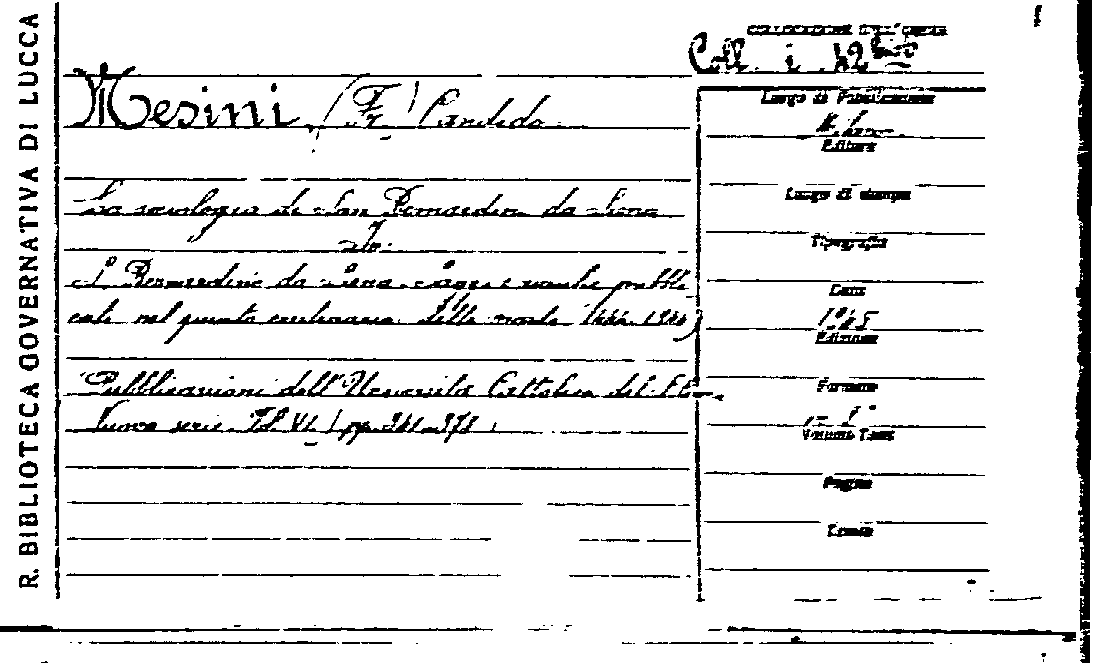 R. BIBLIOTECA GOVERNATIVA DI LUCCA
COLLOCAZIONE DELL'OPERA
Coll. i 42
Mesini (Fr.) Candido
La sociologia di San Bernardino da Siena
In:
S. Bernardino da Siena. Saggi e ricerche pubbli
cate nel quinto centenario della morte (1444-1944)
Pubblicazioni dell'Università Cattolica del S.
Nuova serie. Vol. VI. pp.
Luogo di Pubblicazione
Milano
Editore
Luogo di stampa
Tipografia
Data
1945
Edizione
Formato
8°
Volume Tomi
Pagine